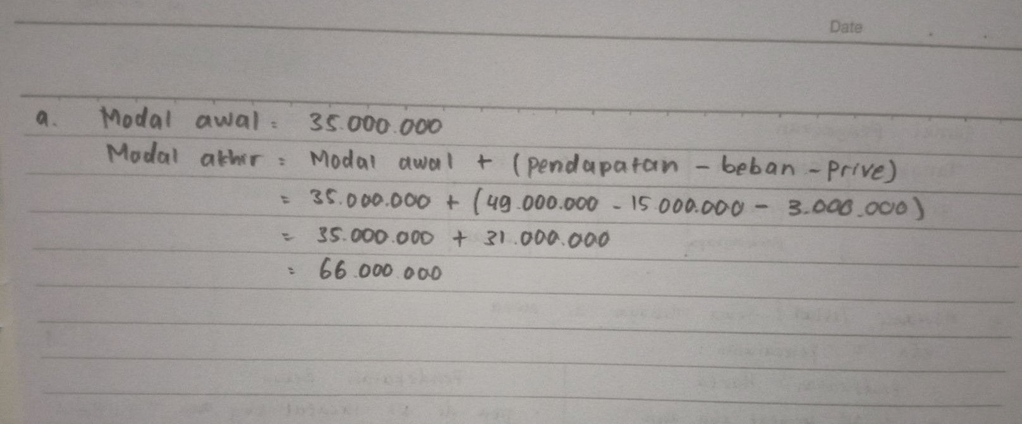 Date
a. Modal awal = 35.000.000
Modal akhir = Modal awal + (pendapatan - beban - prive)
= 35.000.000 + (49.000.000 - 15.000.000 - 3.000.000)
= 35.000.000 + 31.000.000
= 66.000.000